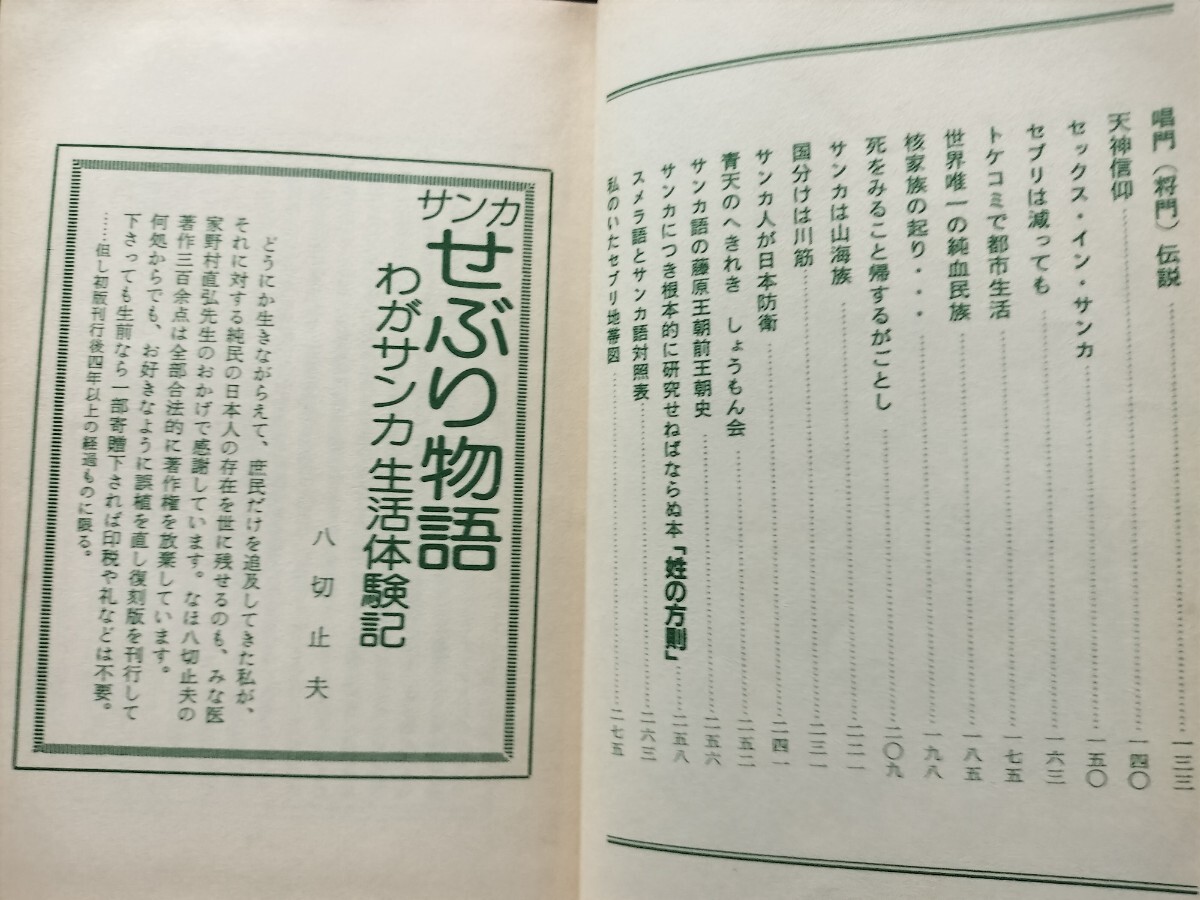 唱門（将門）伝説……一三三
天神信仰……一四〇
セックス・イン・サンカ……一五〇
セブリは減っても……一六三
トケコミで都市生活……一七五
世界唯一の純血民族……一八五
核家族の起り・・・……一九八
死をみること帰するがごとし……二〇九
サンカは山海族……二二一
国分けは川筋……二三一
サンカ人が日本防衛……二四一
青天のへきれき　しょうもん会……二五二
サンカ語の藤原王朝前王朝史……二五六
サンカにつき根本的に研究せねばならぬ本「姓の方則」……二五八
スメラ語とサンカ語対照表……二六三
私のいたセブリ地帯図……二七五
サンカ
せぶり物語
わがサンカ生活体験記
八切止夫
どうにか生きながらえて、庶民だけを追及してきた私が、
それに対する純民の日本人の存在を世に残せるのも、みな医
家野村直弘先生のおかげで感謝しています。なほ八切止夫の
著作三百余点は全部合法的に著作権を放棄しています。
何処からでも、お好きなように誤植を直し復刻版を刊行して
下さっても生前なら一部寄贈下されば印税や礼などは不要。
……但し初版刊行後四年以上の経過ものに限る。